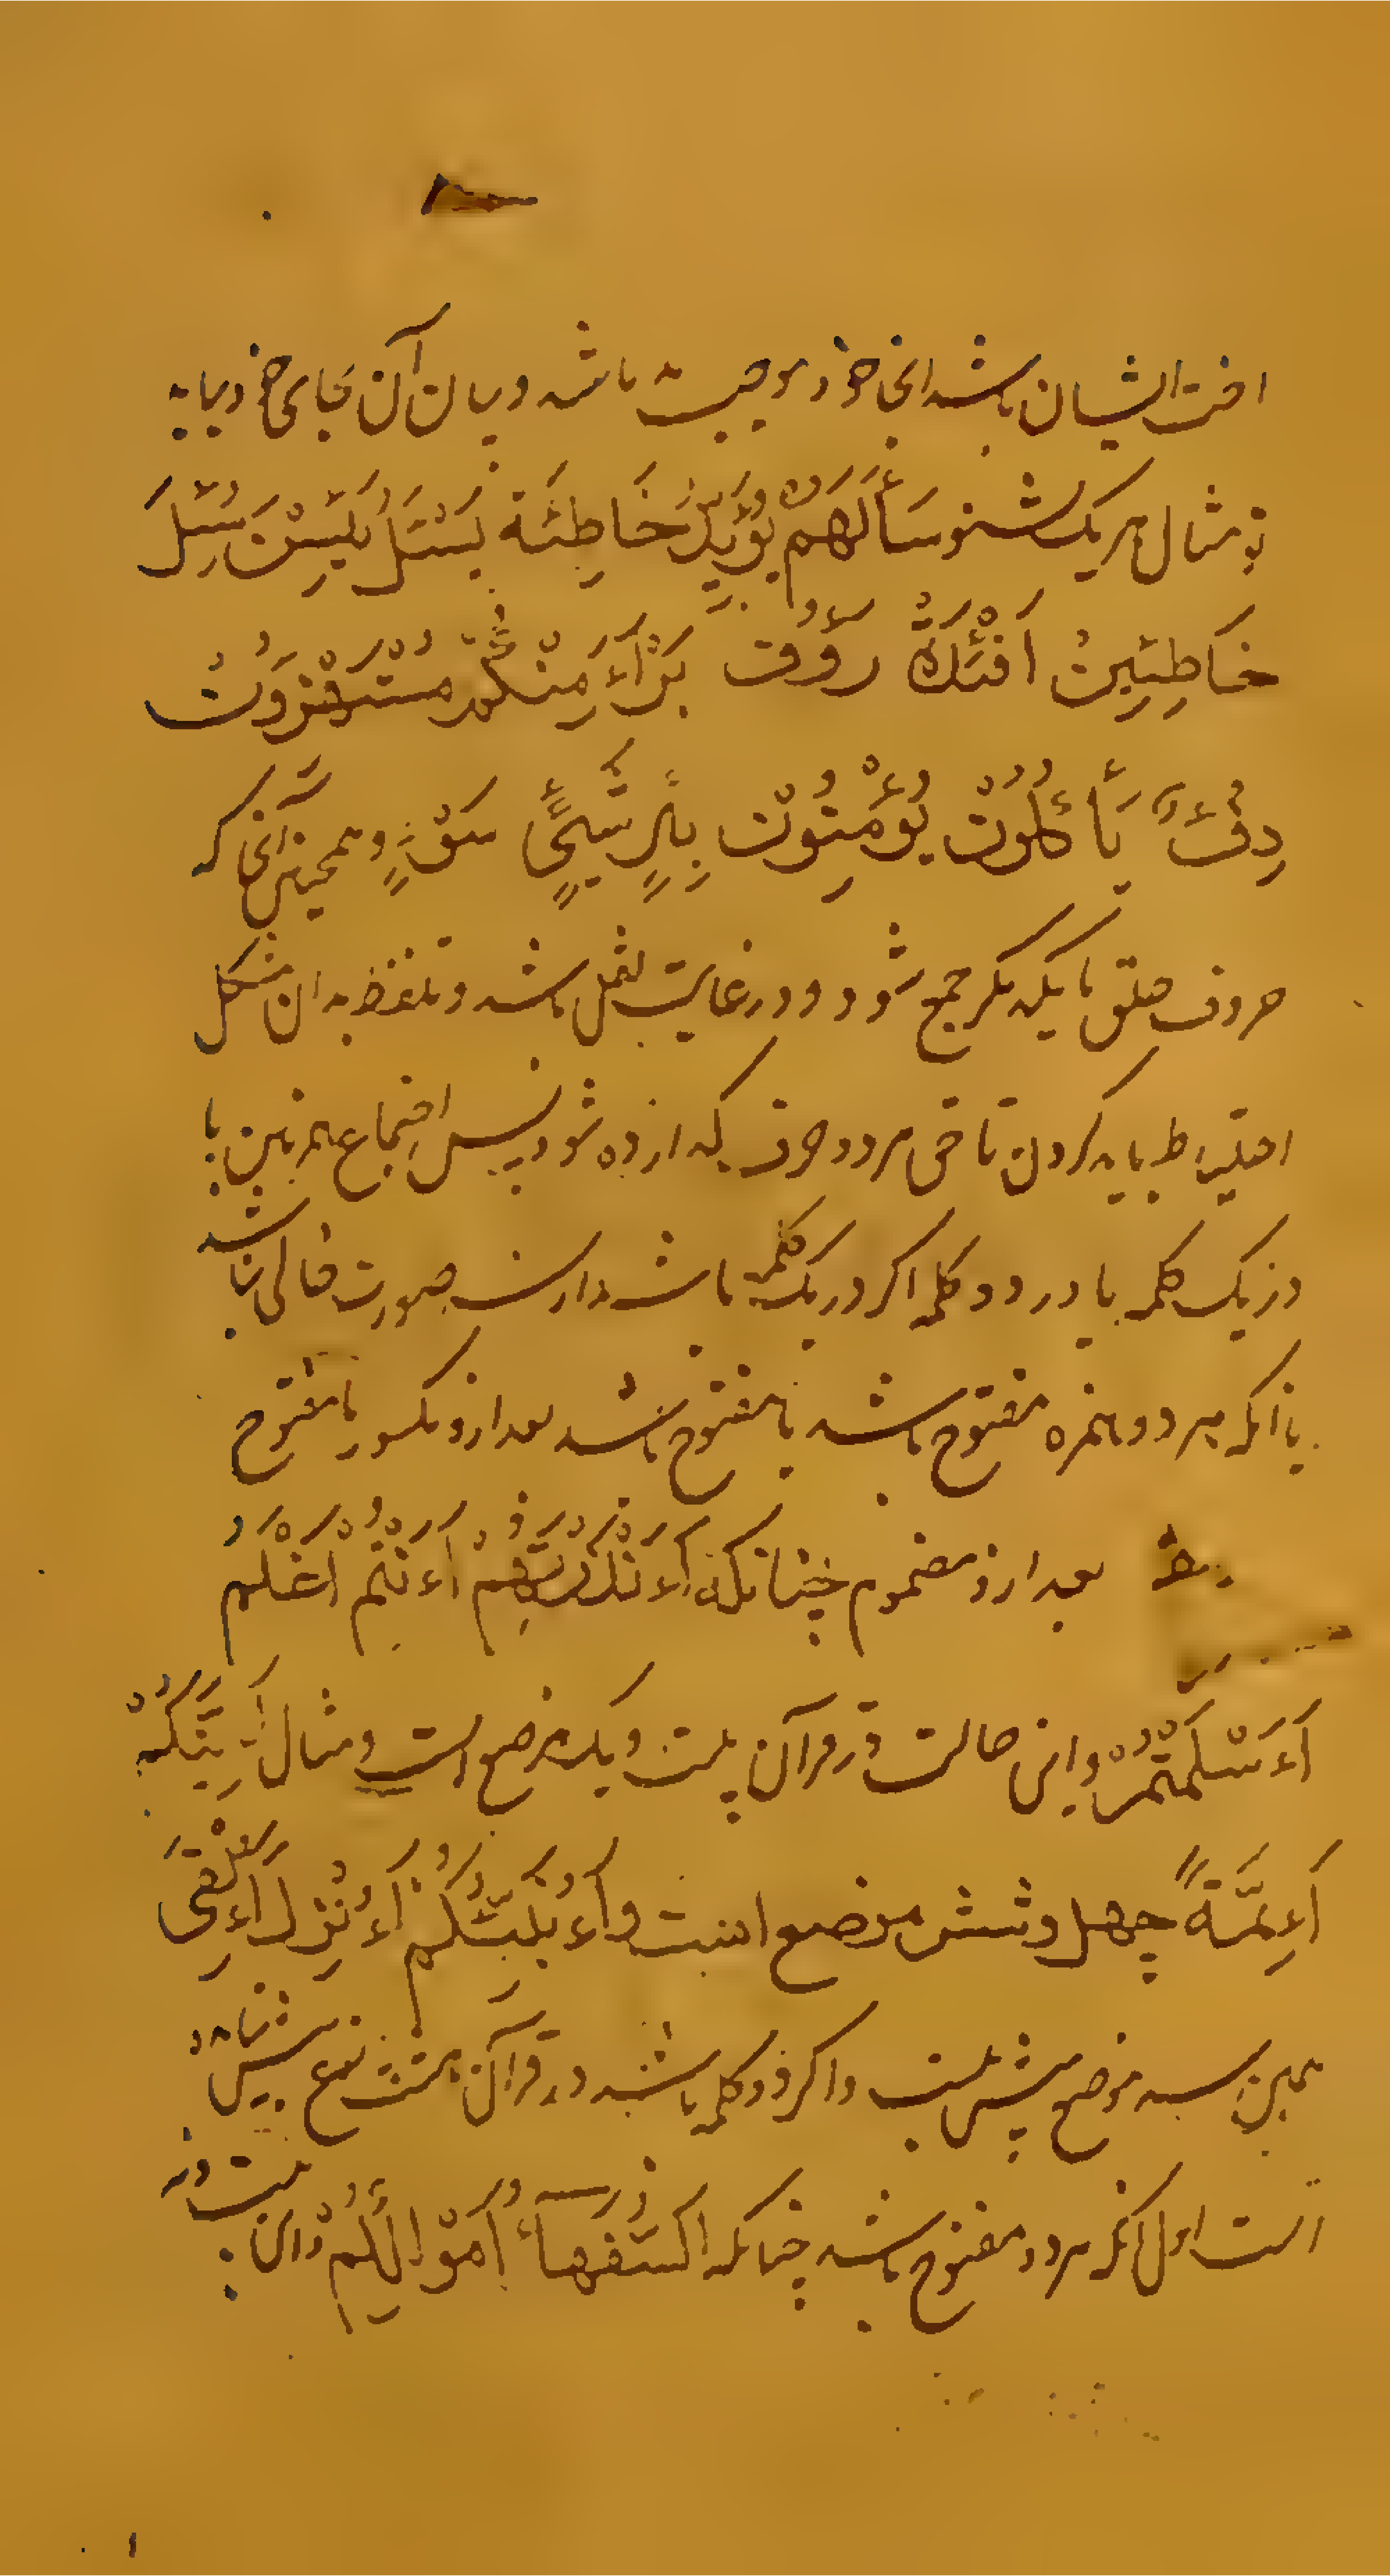 اخت ایشان باشد انجا خود موجب باشد و بیان آن بجای خود بیاید
مثال هر یک بشنو سَأَلَهُمْ یُؤَیِّدُ خَاطِئَة یَسْئَلُ یَئِسْنَ سُئِلَ
خَاطِئِینَ اَفْئِدَةٌ رَؤُفٌ بُرَآءُ مِنْکُمْ مُسْتَهْزِؤُنَ
دِفْءٌ یَأْکُلُونَ یُؤْمِنُونَ بِئْرٍ شَیْءٍ سَوْءٍ و همچنین آنجا که
حروف حلق با یکدیکر جمع شود و در غایت ثقل باشد و تلفظ بدان مشکل
احتیاط باید کردن تا حق هر دو حرف کذارده شود پس اجتماع همزتین یا
در یک کلمه یا در دو کلمه اکر در یک کلمه باشد ازین صورت خالی نباشد
یا انکه هر دو همزه مفتوح باشد یا مفتوح باشد بعد ازو مکسور یا مفتوح
بعد ازو مضموم چنانکه ءَاَنْذَرْتَهُمْ ءَاَنْتُمْ اَعْلَمُ
ءَاَسْلَمْتُمْ و این حالت در قرآن بیست و یک موضع است و مثال اَئِنَّکُمْ
اَئِمَّةً چهل و شش موضع است و اَؤُنَبِّئُکُمْ اَءُنْزِلَ اَءُلْقِیَ
همین سه موضع بیش نیست و اکر در دو کلمه باشد در قرآن هشت نوع بیش نیامده
است اول انکه هر دو مفتوح باشد چنانکه السُّفَهَآءَ اَمْوَالَکُمْ و این بیست و نه